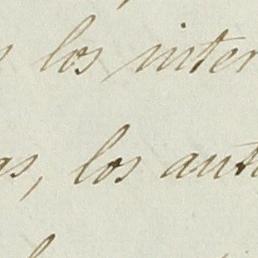 los inter
as, los aut